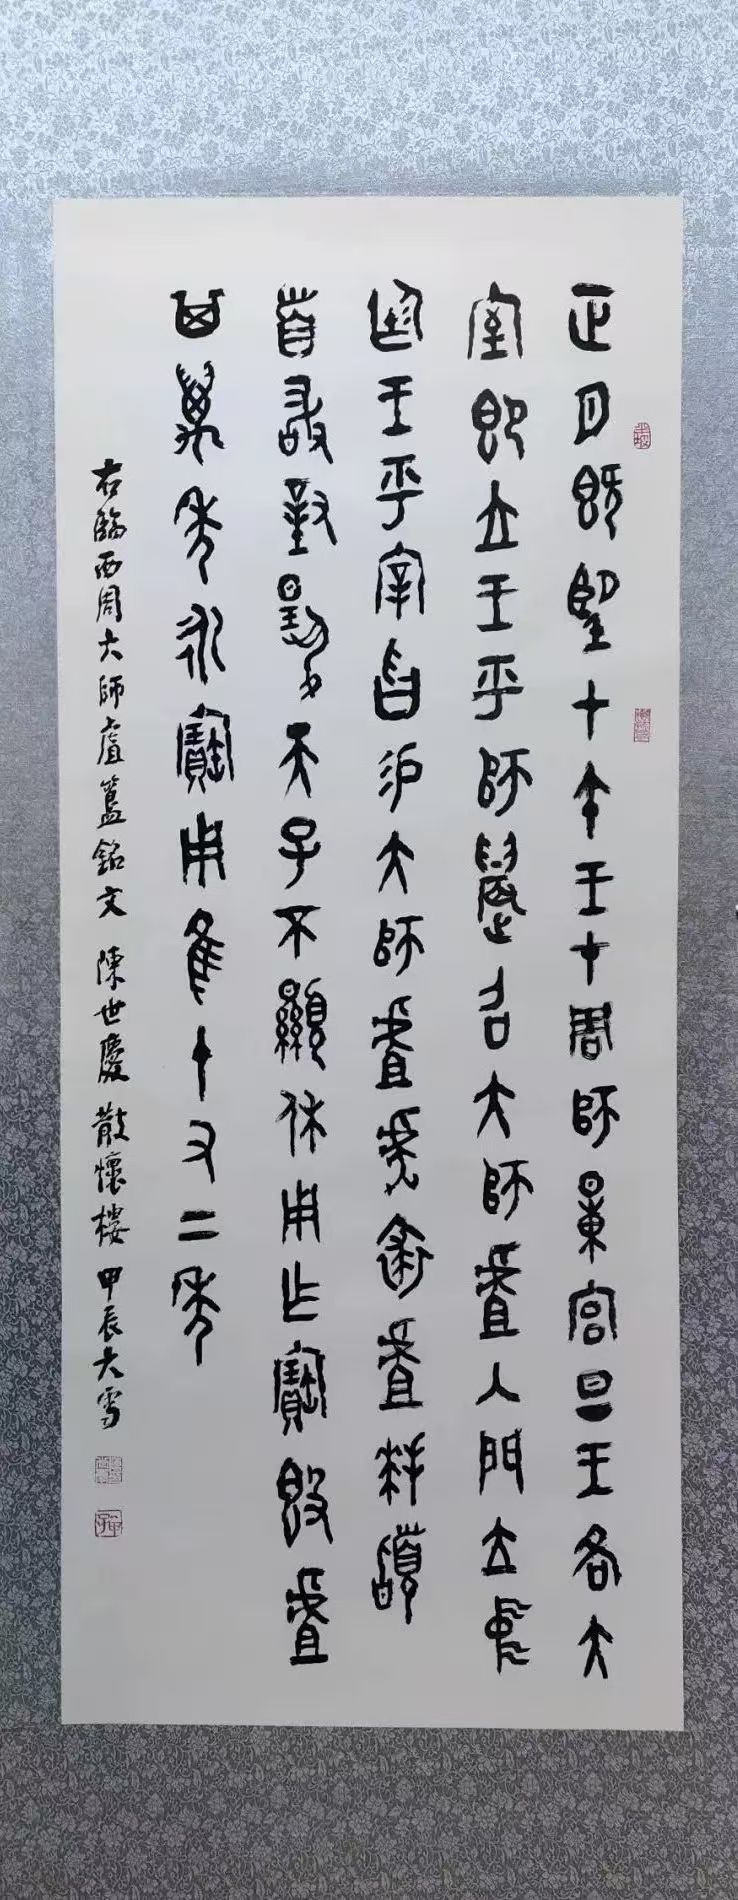 正月既望甲午王才周師量宮旦王各大
室即立王乎師晨召大師虘入門立中
廷王乎宰曶易大師虘虎裘虘拜𩒨
首敢對揚天子不顯休用乍寶𣪘虘
其萬年永寶用隹十又二年
右臨西周大師虘簋銘文 陳世慶 散懷樓 甲辰大雪